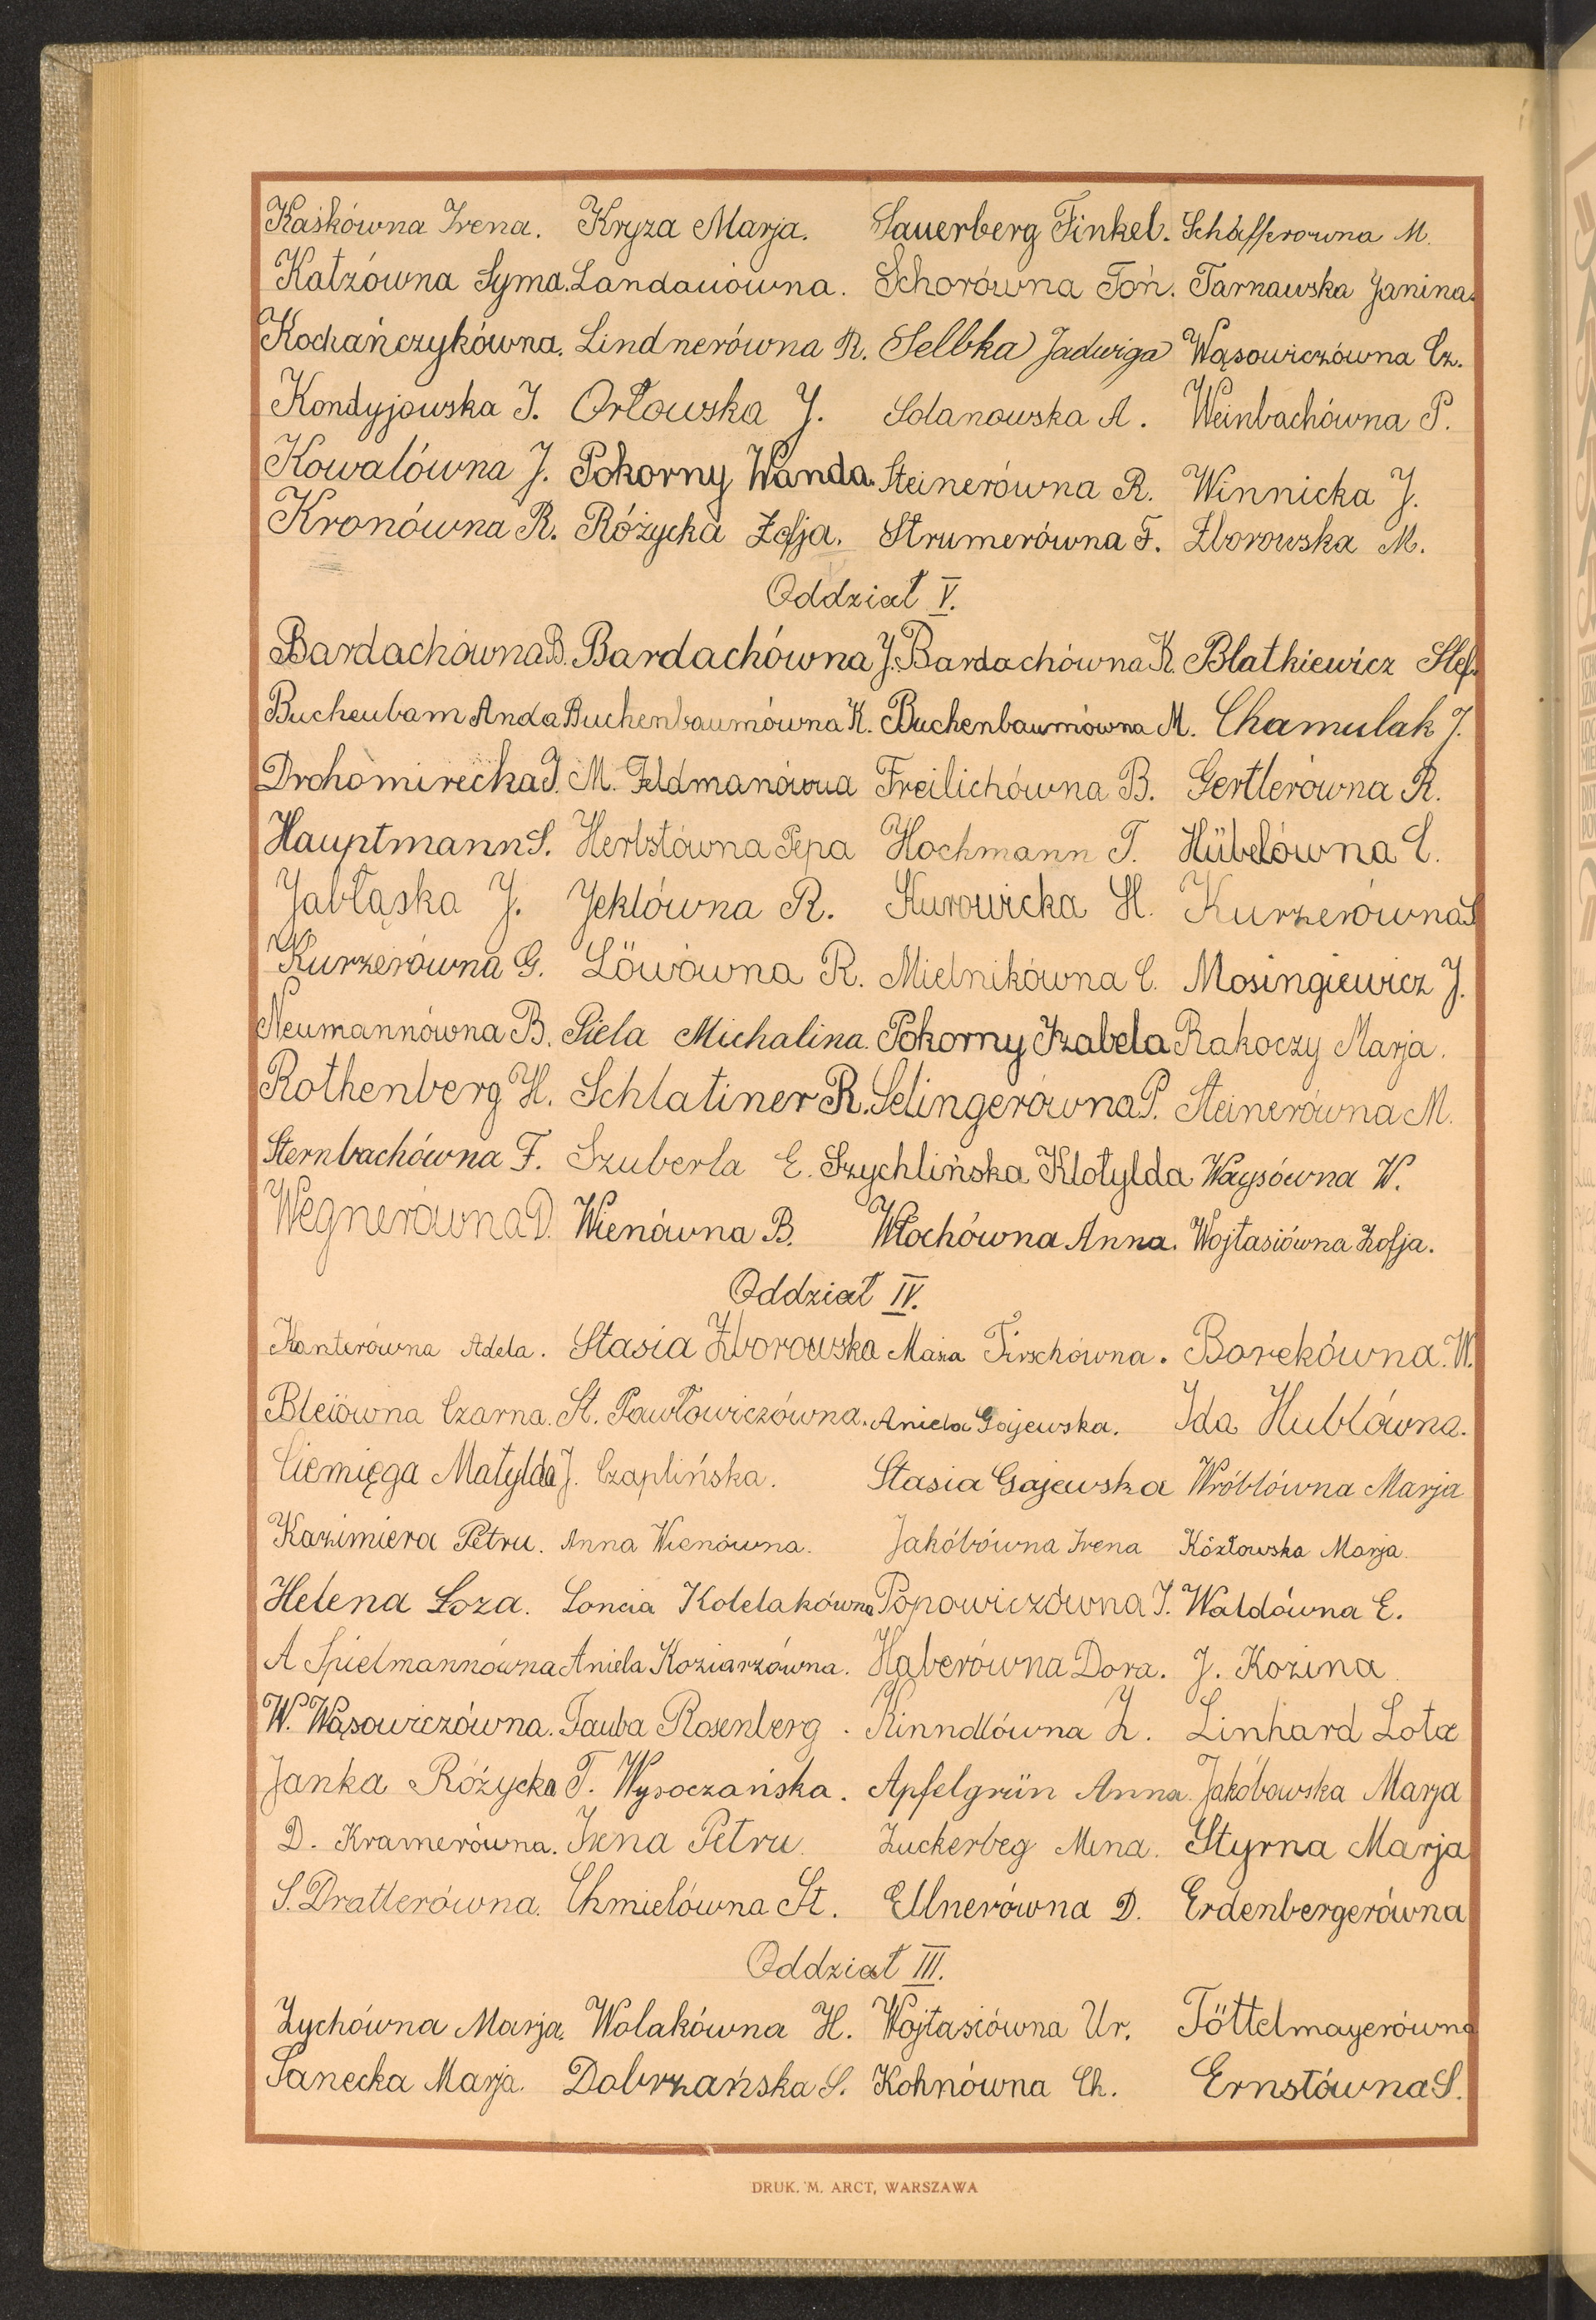 Kaśkówna Irena. Kryza Marja. Sauerberg Finkel. Schäfferówna M.
Katzówna Syma. Landauówna. Schorówna Toń. Tarnawska Janina.
Kochańczykówna. Lindnerówna R. Selbka Jadwiga Wąsowiczówna Cz.
Kondyjowska J. Orłowska J. Solanowska A. Weinbachówna P.
Kowalówna J. Pokorny Wanda. Steinerówna R. Winnicka J.
Kronówna R. Różycka Zofja. Strumerówna F. Zborowska M.
Oddział V.
Bardachówna B. Bardachówna J. Bardachówna K. Blatkiewicz Stef.
Bucheubam Anda Buchenbaumówna K. Buchenbaumówna M. Chamulak J.
Drohomirecka J. M. Feldmanówna Freilichówna B. Gertlerówna R.
Hauptmann S. Herbstówna Pepa Hochmann T. Hübelówna C.
Jabłąska J. Jeklówna R. Kurowicka H. Kurzerówna S
Kurzerówna G. Löwówna R. Mielnikówna C. Mosingiewicz J.
Neumannówna B. Piela Michalina. Pokorny Izabela Rakoczy Marja.
Rothenberg H. Schlatiner R. Selingerówna P. Steinerówna M.
Sternbachówna F. Szuberla E. Szychlińska Klotylda Waysówna W.
Wegnerówna D. Wienówna B. Włochówna Anna. Wojtasiówna Zofja.
Oddział IV.
Kanterówna Adela. Stasia Zborowska Maża Firschówna. Borekówna. W.
Bleiówna Czarna. St. Pawłowiczówna. Aniela Gajewska. Ida Hublówna.
Ciemięga Matylda J. Czaplińska. Stasia Gajewska Wróblówna Marja
Kazimiera Petru. Anna Wienówna. Jakóbówna Irena Kózłowska Marja.
Helena Łoza. Loncia Kolelakówna Popowiczówna J. Waldówna E.
A Spielmannówna Aniela Koziarzówna. Haberówna Dora. J. Kozina
W. Wąsowiczówna. Tauba Rosenberg. Kinndlówna Z. Linhard Lota
Janka Różycka T. Wysoczańska. Apfelgrün Anna. Jakóbowska Marja
D. Kramerówna. Irena Petru. Zuckerbeg Mina. Styrna Marja
S. Dratlerówna. Chmielówna St. Ellnerówna D. Erdenbergerówna
Oddział III.
Zychówna Marja. Wolakówna H. Wojtasiówna Ur. Töttelmayerówna
Sanecka Marja. Dobrzańska S. Kohnówna Ch. Ernstówna S.
DRUK. M. ARCT, WARSZAWA